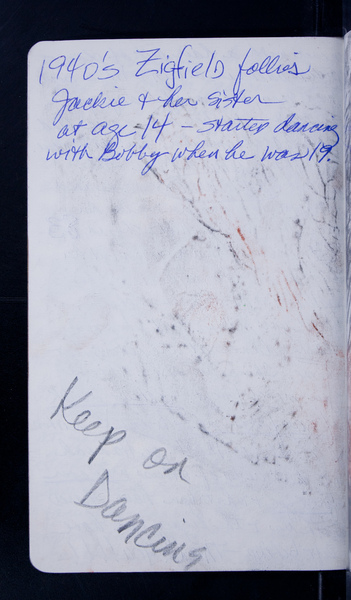 1940's Zigfield follies
Jackie & her sister
at age 14 - started dancing
with Bobby when he was 19.
Keep on
Dancing